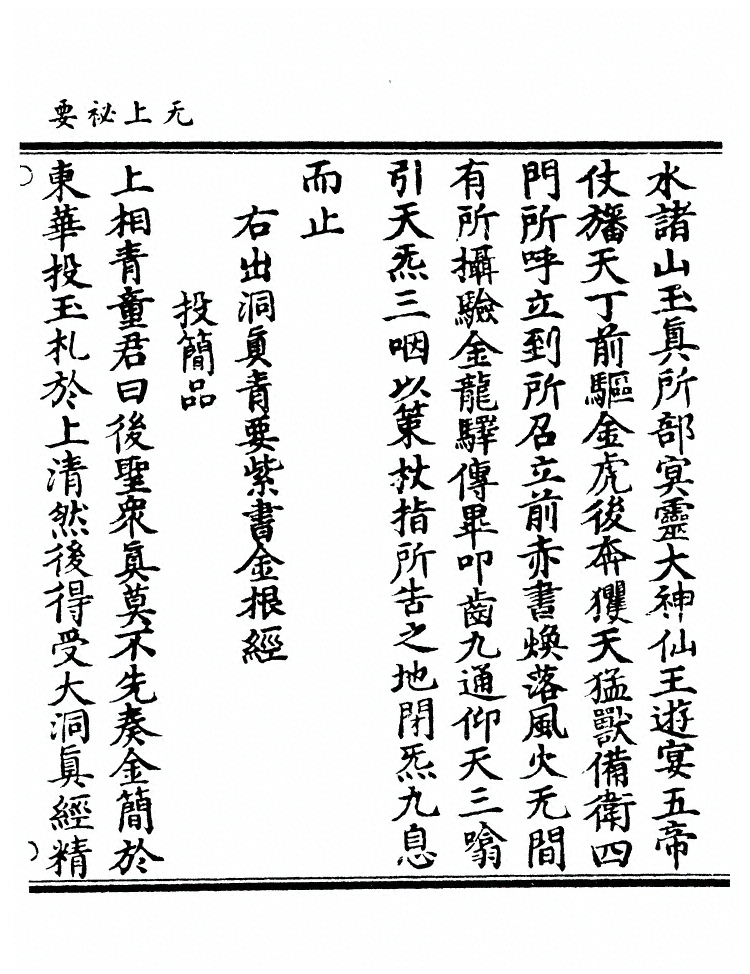 无上祕要
水諸山玉眞所部㝠靈大神仙王遊宴五帝
仗旛天丁前驅金虎後奔玃天猛獸備衛四
門所呼立到所召立前赤書煥落風火无間
有所攝驗金龍驛傳畢叩齒九通仰天三噏
引天炁三咽以策杖指所告之地閉炁九息
而止
右出洞眞青要紫書金根經
投簡品
上相青童君曰後聖衆眞莫不先奏金簡於
東華投玉札於上清然後得受大洞眞經精